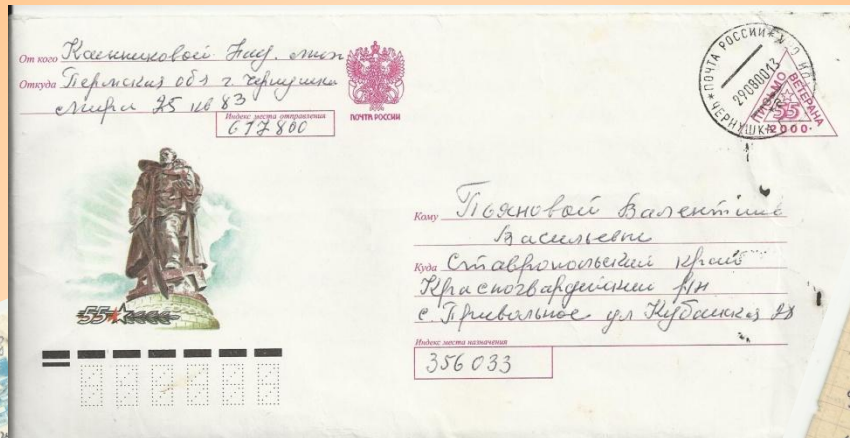 От кого Канниковой Над. 
Откуда Пермская обл г. Чернушка
Мира 25 кв 83
Индекс места отправления
617800
ПОЧТА РОССИИ
ПОЧТА РОССИИ
29080013
ЧЕРНУШКА
ПИСЬМО ВЕТЕРАНА
55
2000
55
Кому Пьяновой Валентине
Васильевне
Куда Ставропольский край
Красногвардейский р-н
с. Привольное ул Кубанская 28
Индекс места назначения
356033